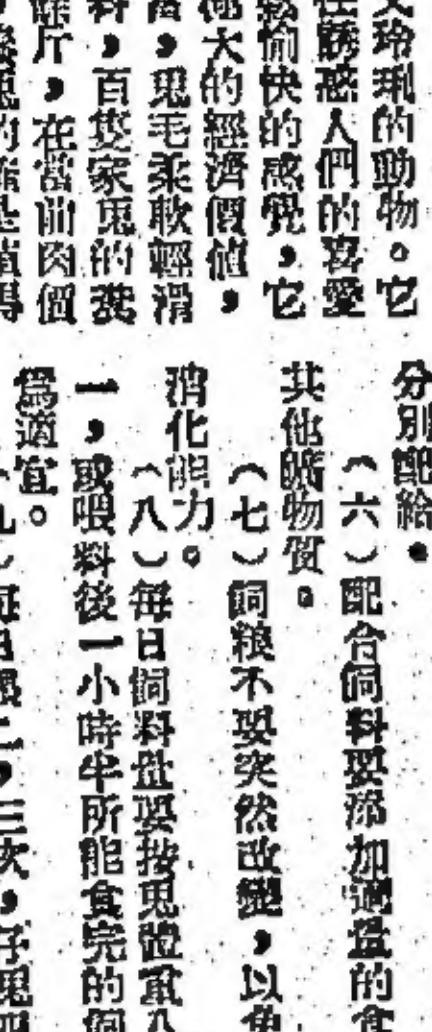 玲瑯的動物。它
誘惑人們的喜愛
愉快的感覺,它
大的經濟價值,
,兎毛柔軟輕滑
,百隻家兎的糞
斤,在當前肉價
分別配給。
(六)配合飼料要添加適量的食
其他鑛物質。
(七)飼粮不要突然改變,以免
消化能力。
(八)每日飼料量要按兎體重八
一,或喂料後一小時半所能食完的飼
為適宜。
二,三次,仔兎四